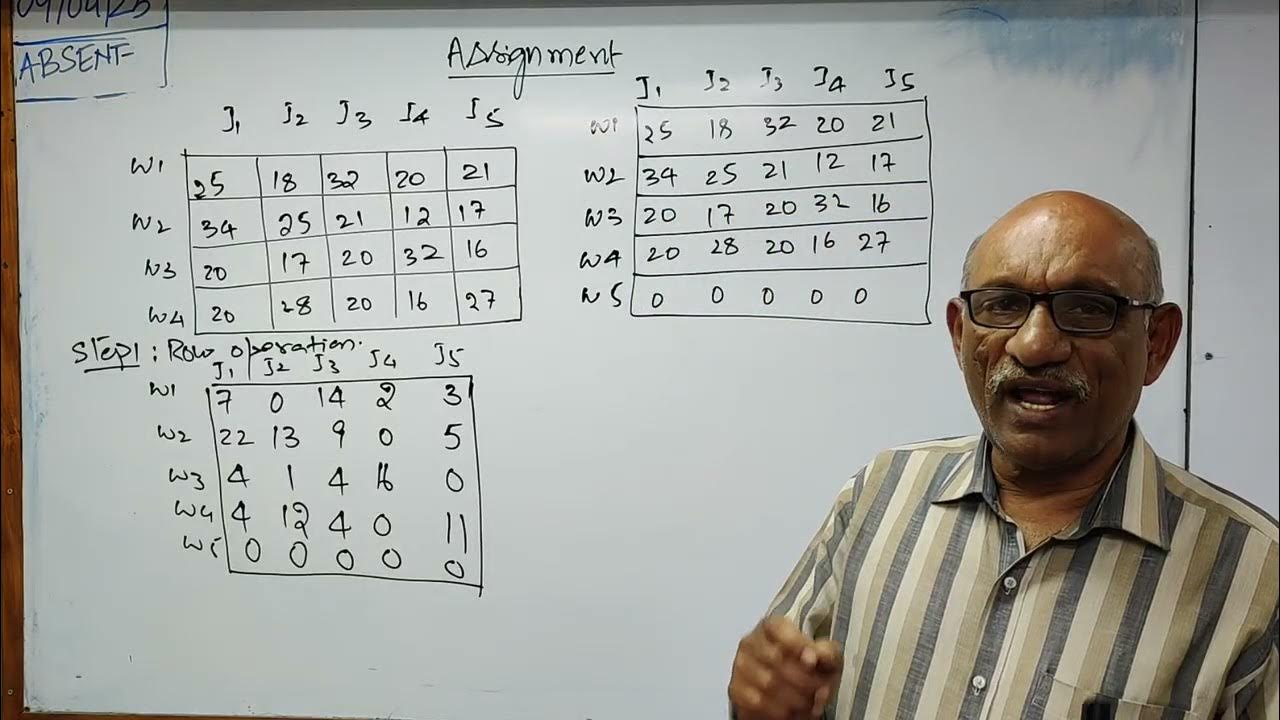 09/04/25
ABSENT
Assignment
J1 J2 J3 J4 J5
W1 25 18 32 20 21
W2 34 25 21 12 17
W3 20 17 20 32 16
W4 20 28 20 16 27
J1 J2 J3 J4 J5
W1 25 18 32 20 21
W2 34 25 21 12 17
W3 20 17 20 32 16
W4 20 28 20 16 27
W5 0 0 0 0 0
Step1 : Row operation.
J1 J2 J3 J4 J5
W1 7 0 14 2 3
W2 22 13 9 0 5
W3 4 1 4 16 0
W4 4 12 4 0 11
W5 0 0 0 0 0